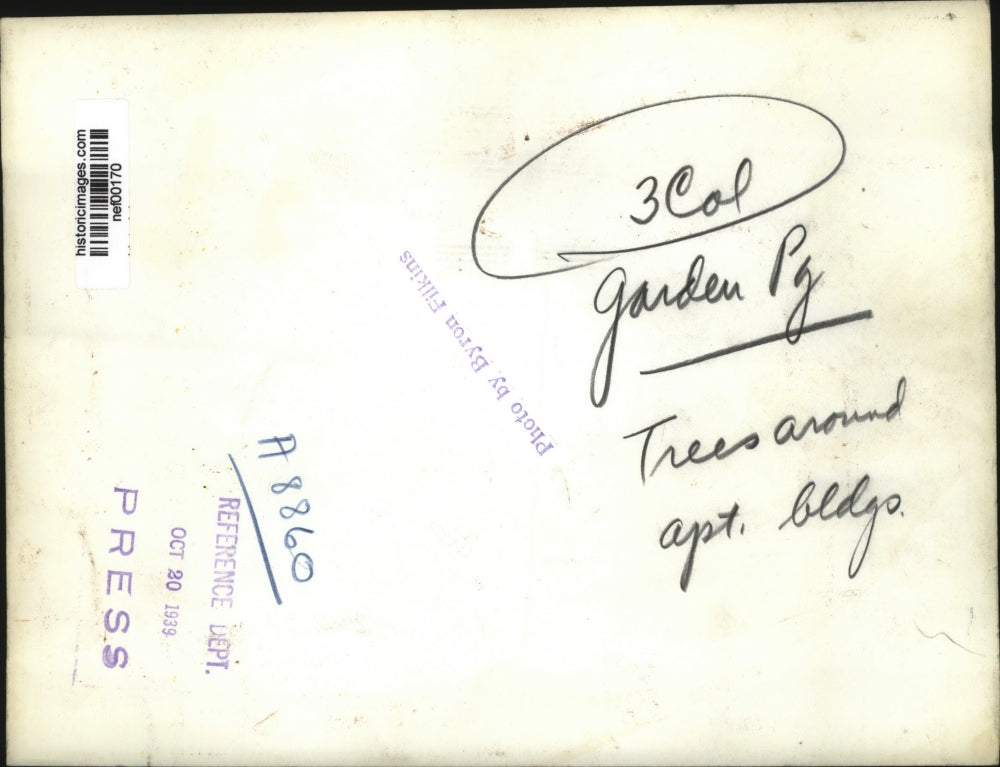 3 Col
Garden Pg
Trees around
apt. bldgs.
Photo by Byron Filkins
A 8860
REFERENCE DEPT.
OCT 20 1939
PRESS
historicimages.com
nef00170